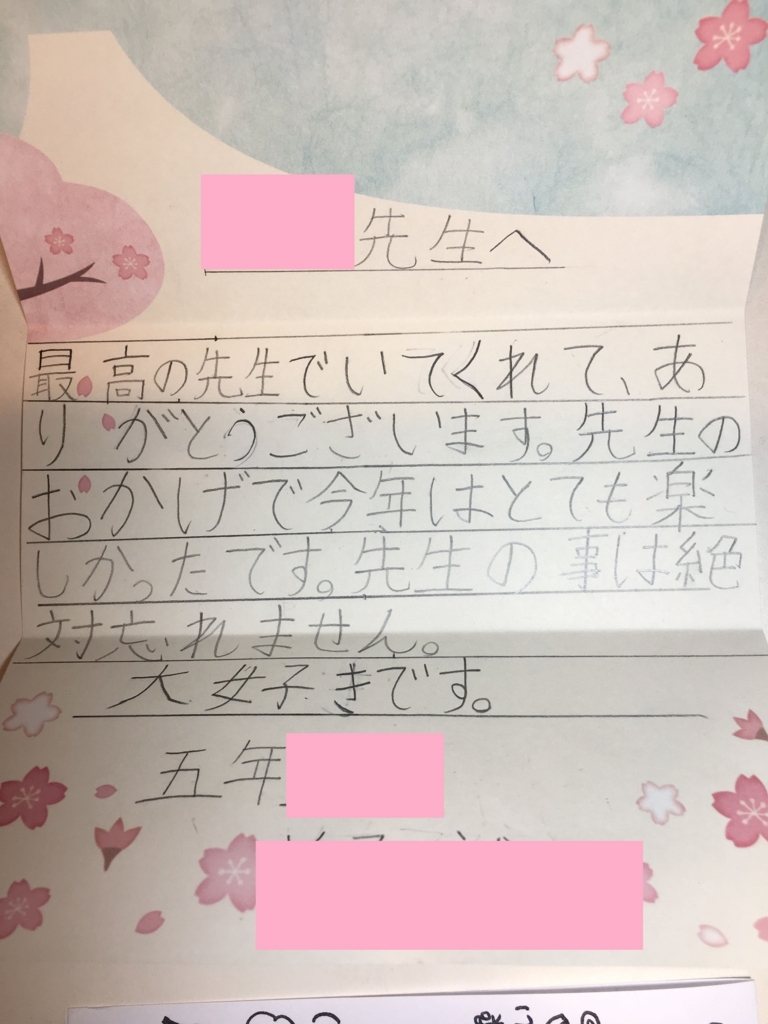 先生へ
最高の先生でいてくれて、あ
りがとうございます。先生の
おかげで今年はとても楽
しかったです。先生の事は絶
対忘れません。
大好きです。
五年